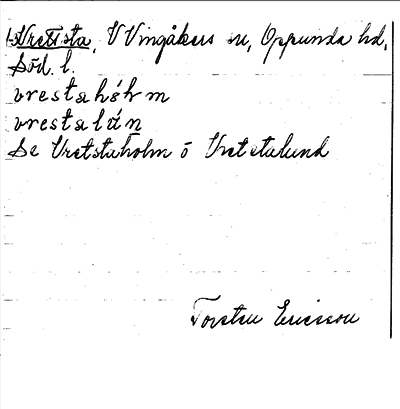 Vretsta, V Vingåkers sn, Oppunda hd,
Söd. l.
vrestahólm
vrestalún
Se Vretstaholm o Vretstalund
Torsten Ericsson